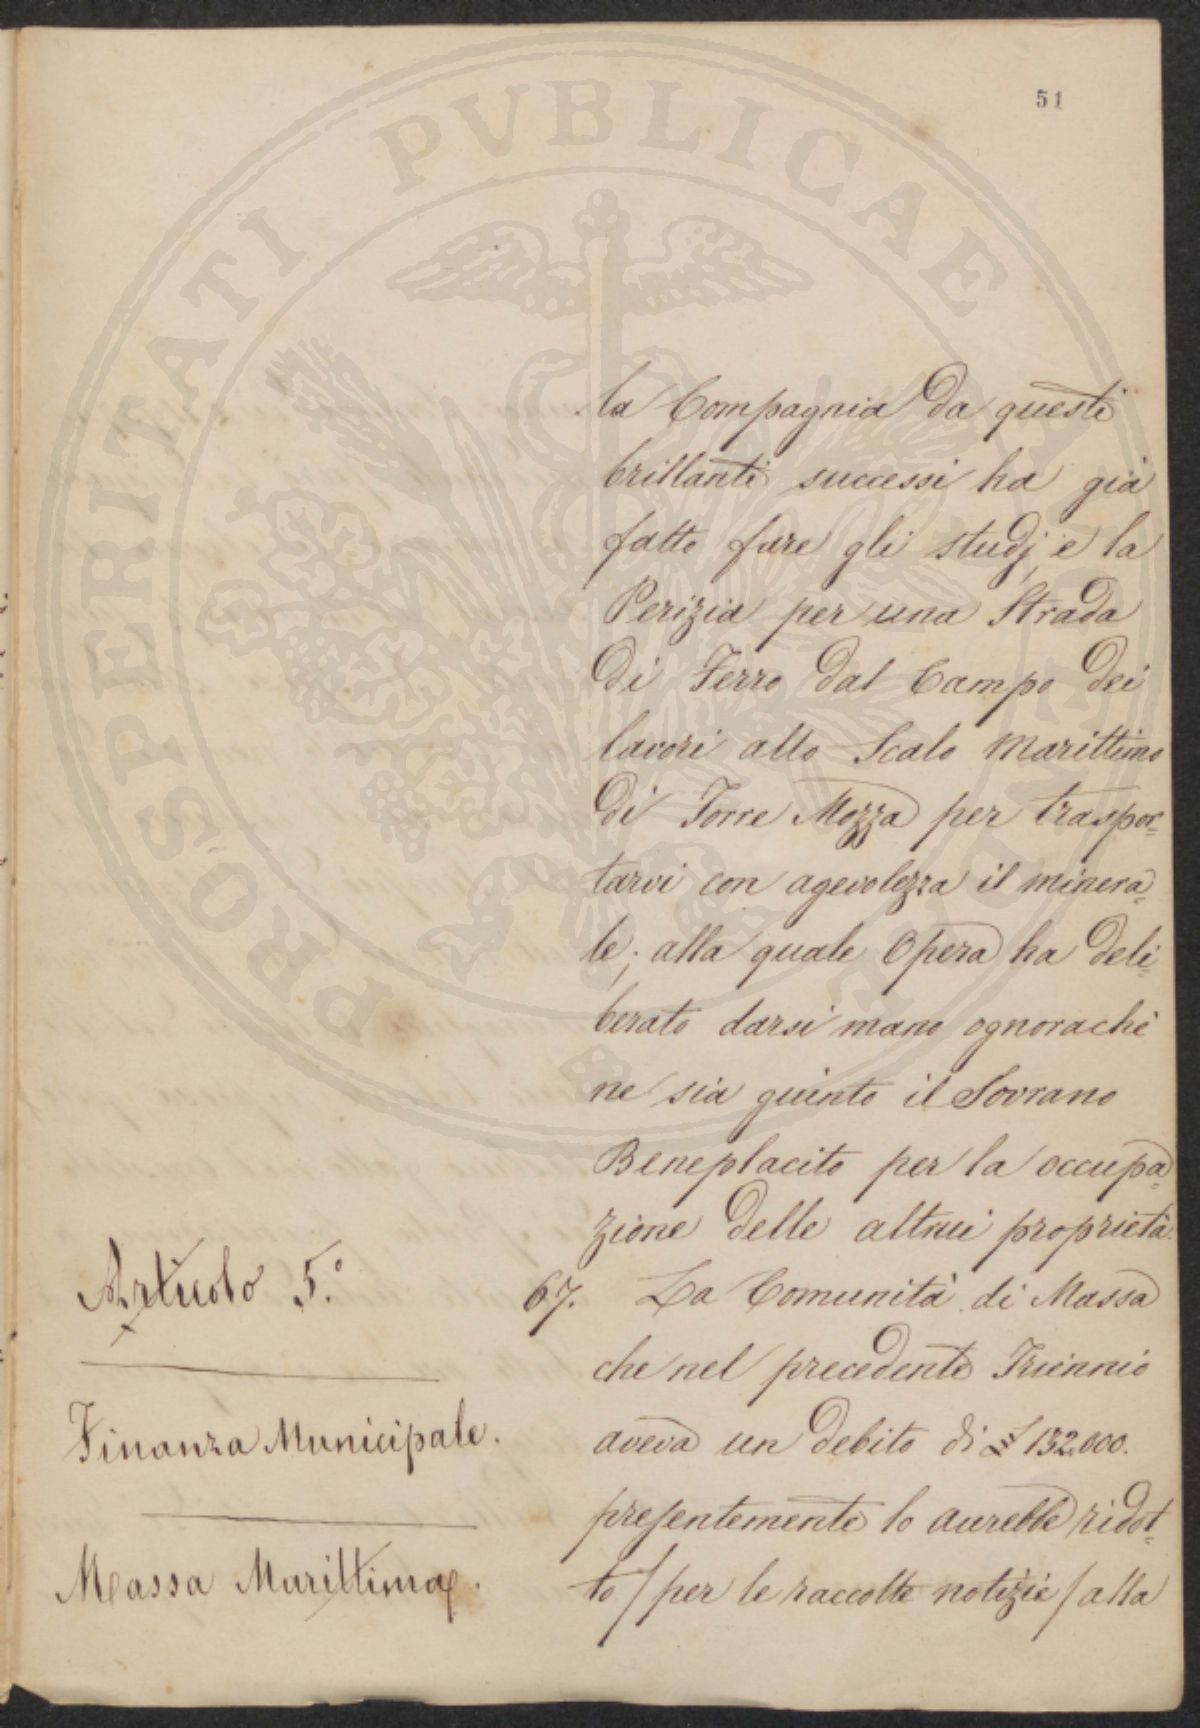 51
la Compagnia da questi
brillanti successi ha già
fatto fare gli studj, e la
Perizia per una Strada
di Ferro dal Campo dei
lavori allo Scalo Marittimo
di Torre Mozza per traspor=
tarvi con agevolezza il minera=
le; alla quale Opera ha deli=
berato darsi mano ognorachè
ne sia giunto il Sovrano
Beneplacito per la occupa=
zione delle altrui proprietà.
Articolo 5.°
67. La Comunità di Massa
che nel precedente Triennio
Finanza Municipale.
aveva un debito di £ 132.000.
presentemente lo avrebbe ridot=
Massa Marittima.
to / per le raccolte notizie / alla
PROSPERITATI PVBLICAE